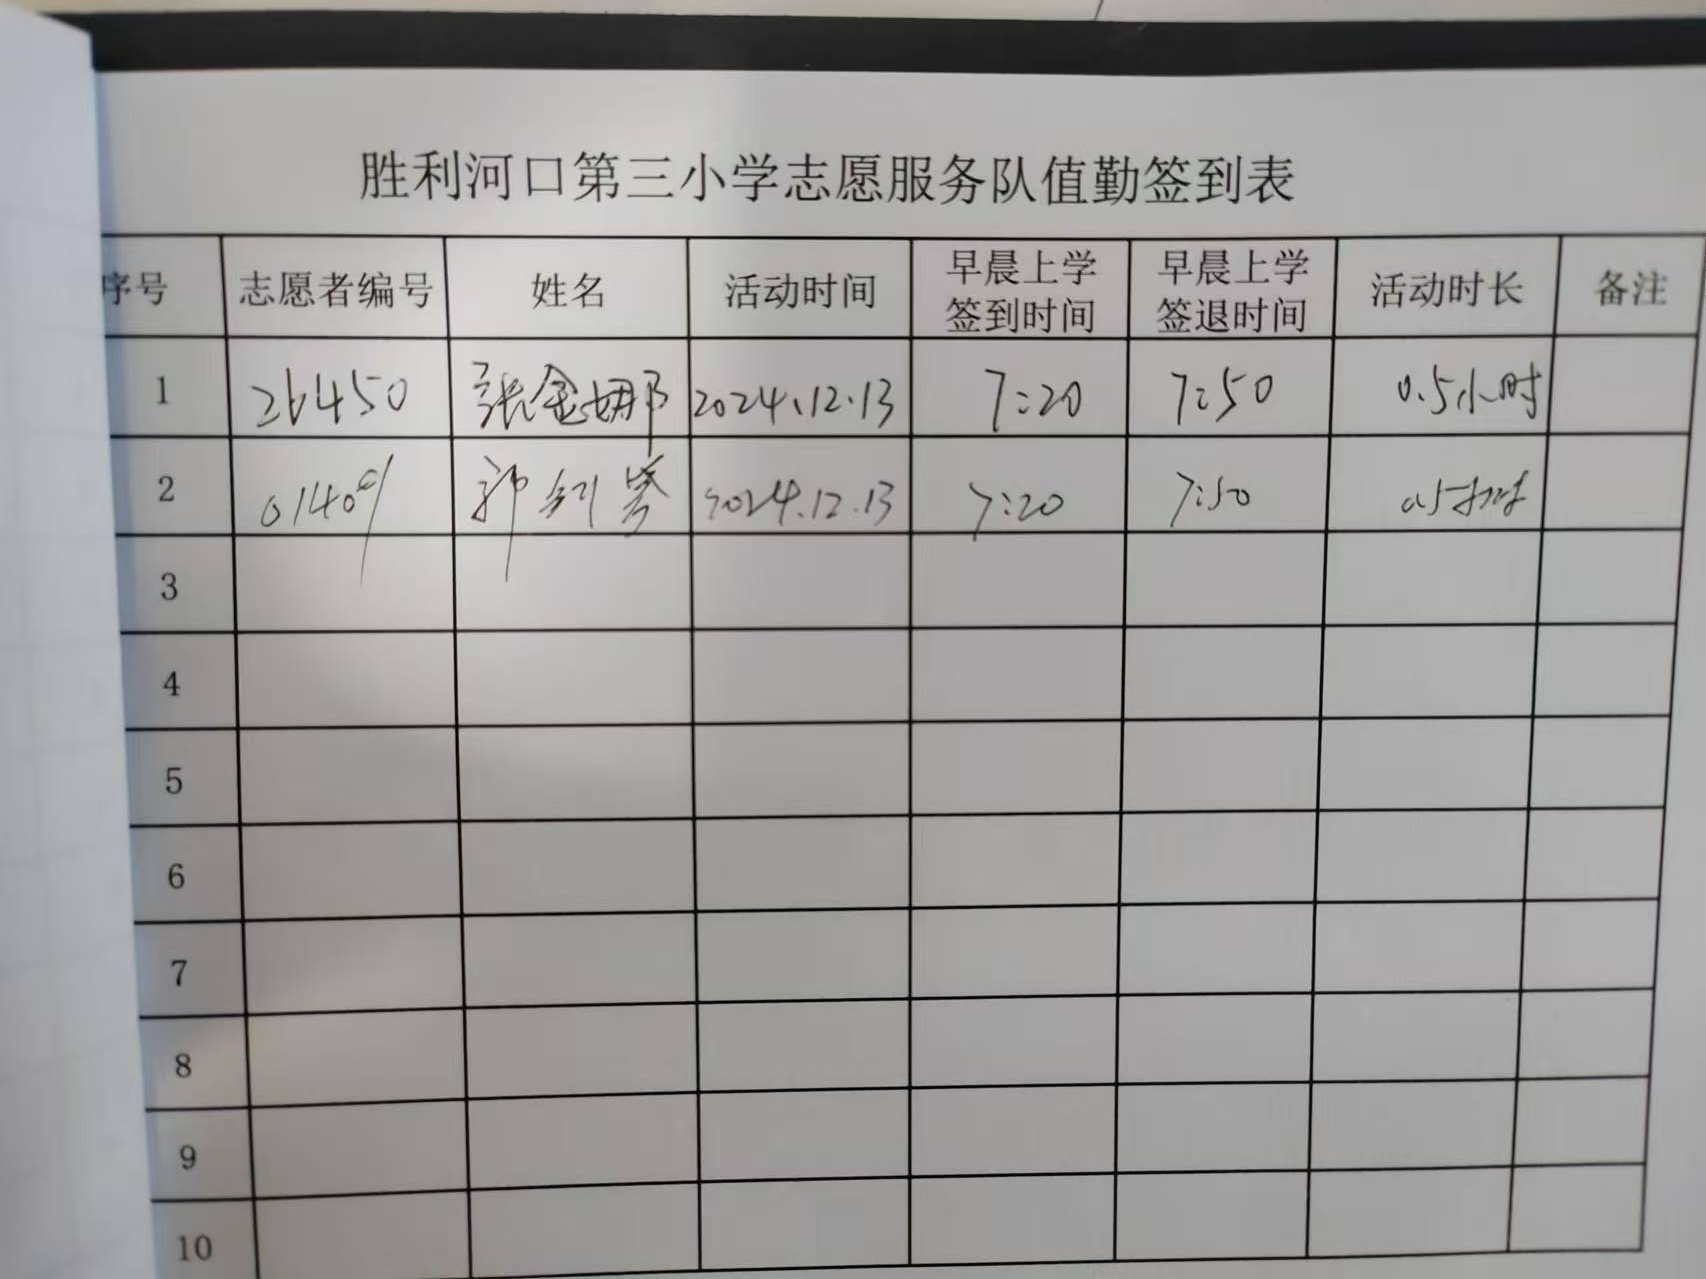 胜利河口第三小学志愿服务队值勤签到表
序号 志愿者编号 姓名 活动时间 早晨上学签到时间 早晨上学签退时间 活动时长 备注
1 26450 张金娜 2024.12.13 7:20 7:50 0.5小时
2 01409 2024.12.13 7:20 7:50 0.5小时
3
4
5
6
7
8
9
10